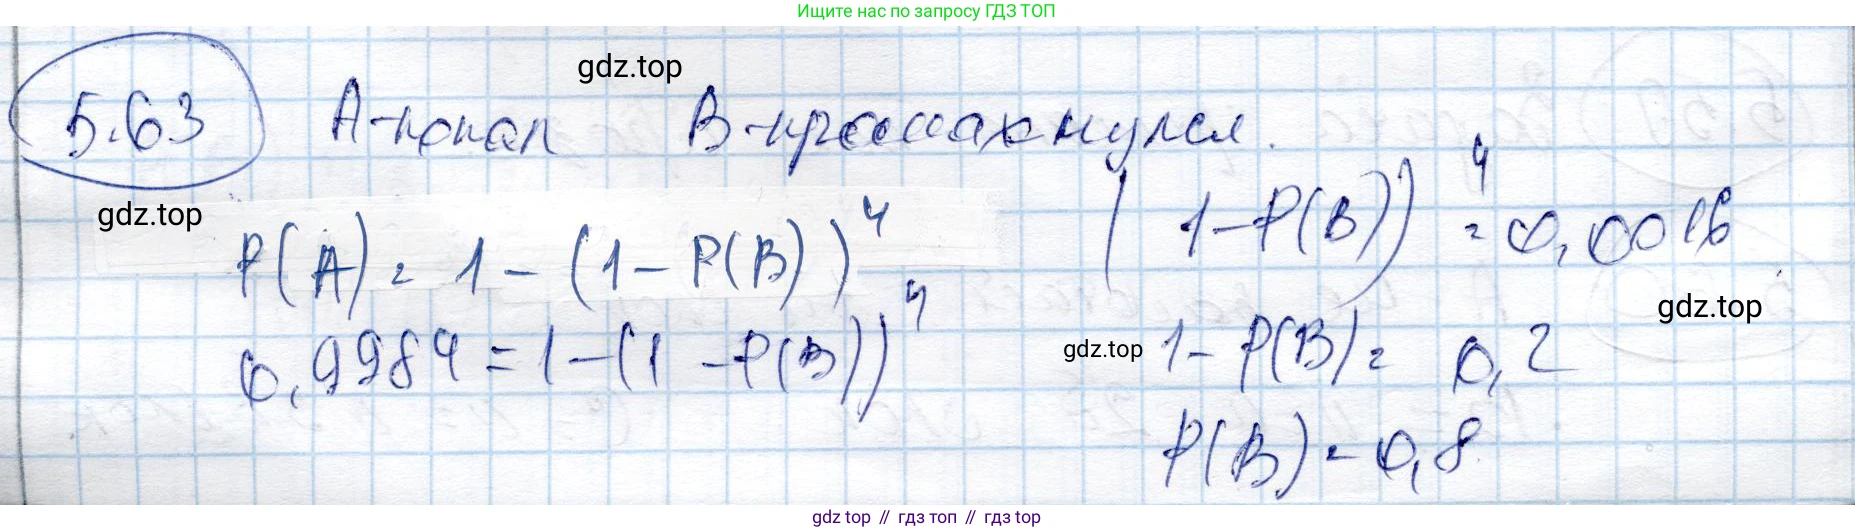 Ищите нас по запросу ГДЗ ТОП
gdz.top
5.63 А-попал В-промахнулся.
gdz.top
P(A) = 1 - (1 - P(B))⁴
(1-P(B))⁴ = 0,0016
0,9984 = 1 - (1 - P(B))⁴
gdz.top
gdz.top
1 - P(B) = 0,2
P(B) = 0,8
gdz.top // гдз топ // гдз top